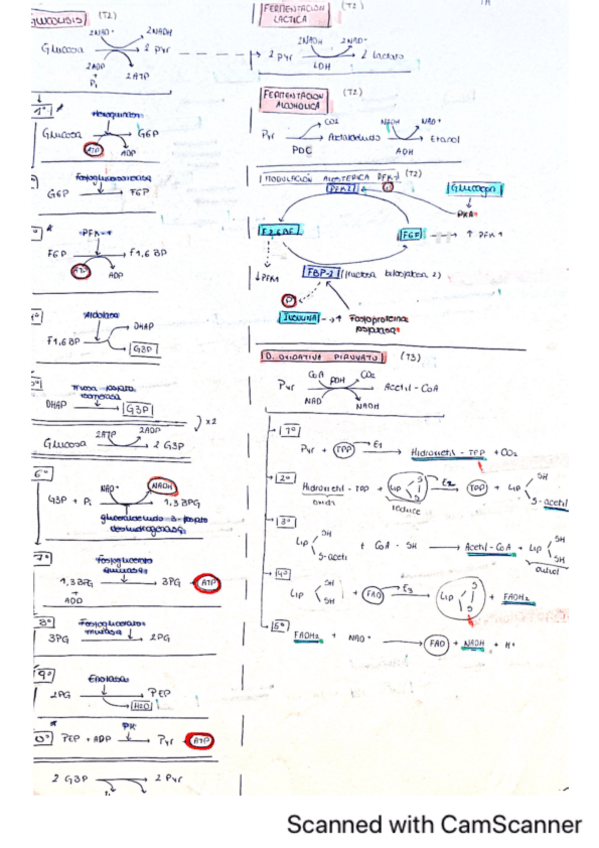 GLUCOLISIS (T2)
2NAD+ 2NADH
Glucosa 2 Pyr
2ADP + Pi 2ATP
1º *
Hexoquinasa
Glucosa G6P
ATP ADP
G6P F6P
*
PFK-1
F6P F1,6 BP
ATP ADP
Aldolasa
F1,6 BP DHAP
G3P
DHAP G3P
x2
2ATP 2ADP
Glucosa 2 G3P
6º
NAD+ NADH
G3P + Pi 1,3 BPG
gliceraldehido 3-fosfato
deshidrogenasa
7º
Fosfoglicerato
quinasa
1,3 BPG 3PG ATP
+
ADP
8º
Fosfoglicerato
mutasa
3PG 2PG
9º
Enolasa
2PG PEP
H2O
*
PK
PEP + ADP Pyr ATP
2 G3P 2 Pyr
FERMENTACION
LACTICA
(T2)
2NADH 2NAD+
2 pyr 2 lactato
LDH
FERMENTACION
ALCOHOLICA
(T2)
CO2 NADH NAD+
Pyr Acetaldehido Etanol
PDC ADH
MODULACIÓN ALOSTERICA PFK-1 (T2)
PFK-2 P
Glucagon
PKA
F2,6BP F6P ↑ PFK
↓PFK1
FBP-2 (fructosa bifosfatasa 2)
P
INSULINA ↑ Fosfoproteina
fosfatasa
D. OXIDATIVA PIRUVATO (T3)
CoA PDH CO2
Pyr Acetil-CoA
NAD NADH
1º
Pyr + TPP E1 Hidroxietil-TPP + CO2
2º
Hidroxietil-TPP + Lip S S E2 TPP + Lip SH S-acetil
oxida reduce
3º
Lip SH S-acetil + CoA-SH Acetil-CoA + Lip SH SH
4º
Lip SH SH + FAD E3 Lip S S + FADH2
5º
FADH2 + NAD+ FAD + NADH + H+
Scanned with CamScanner